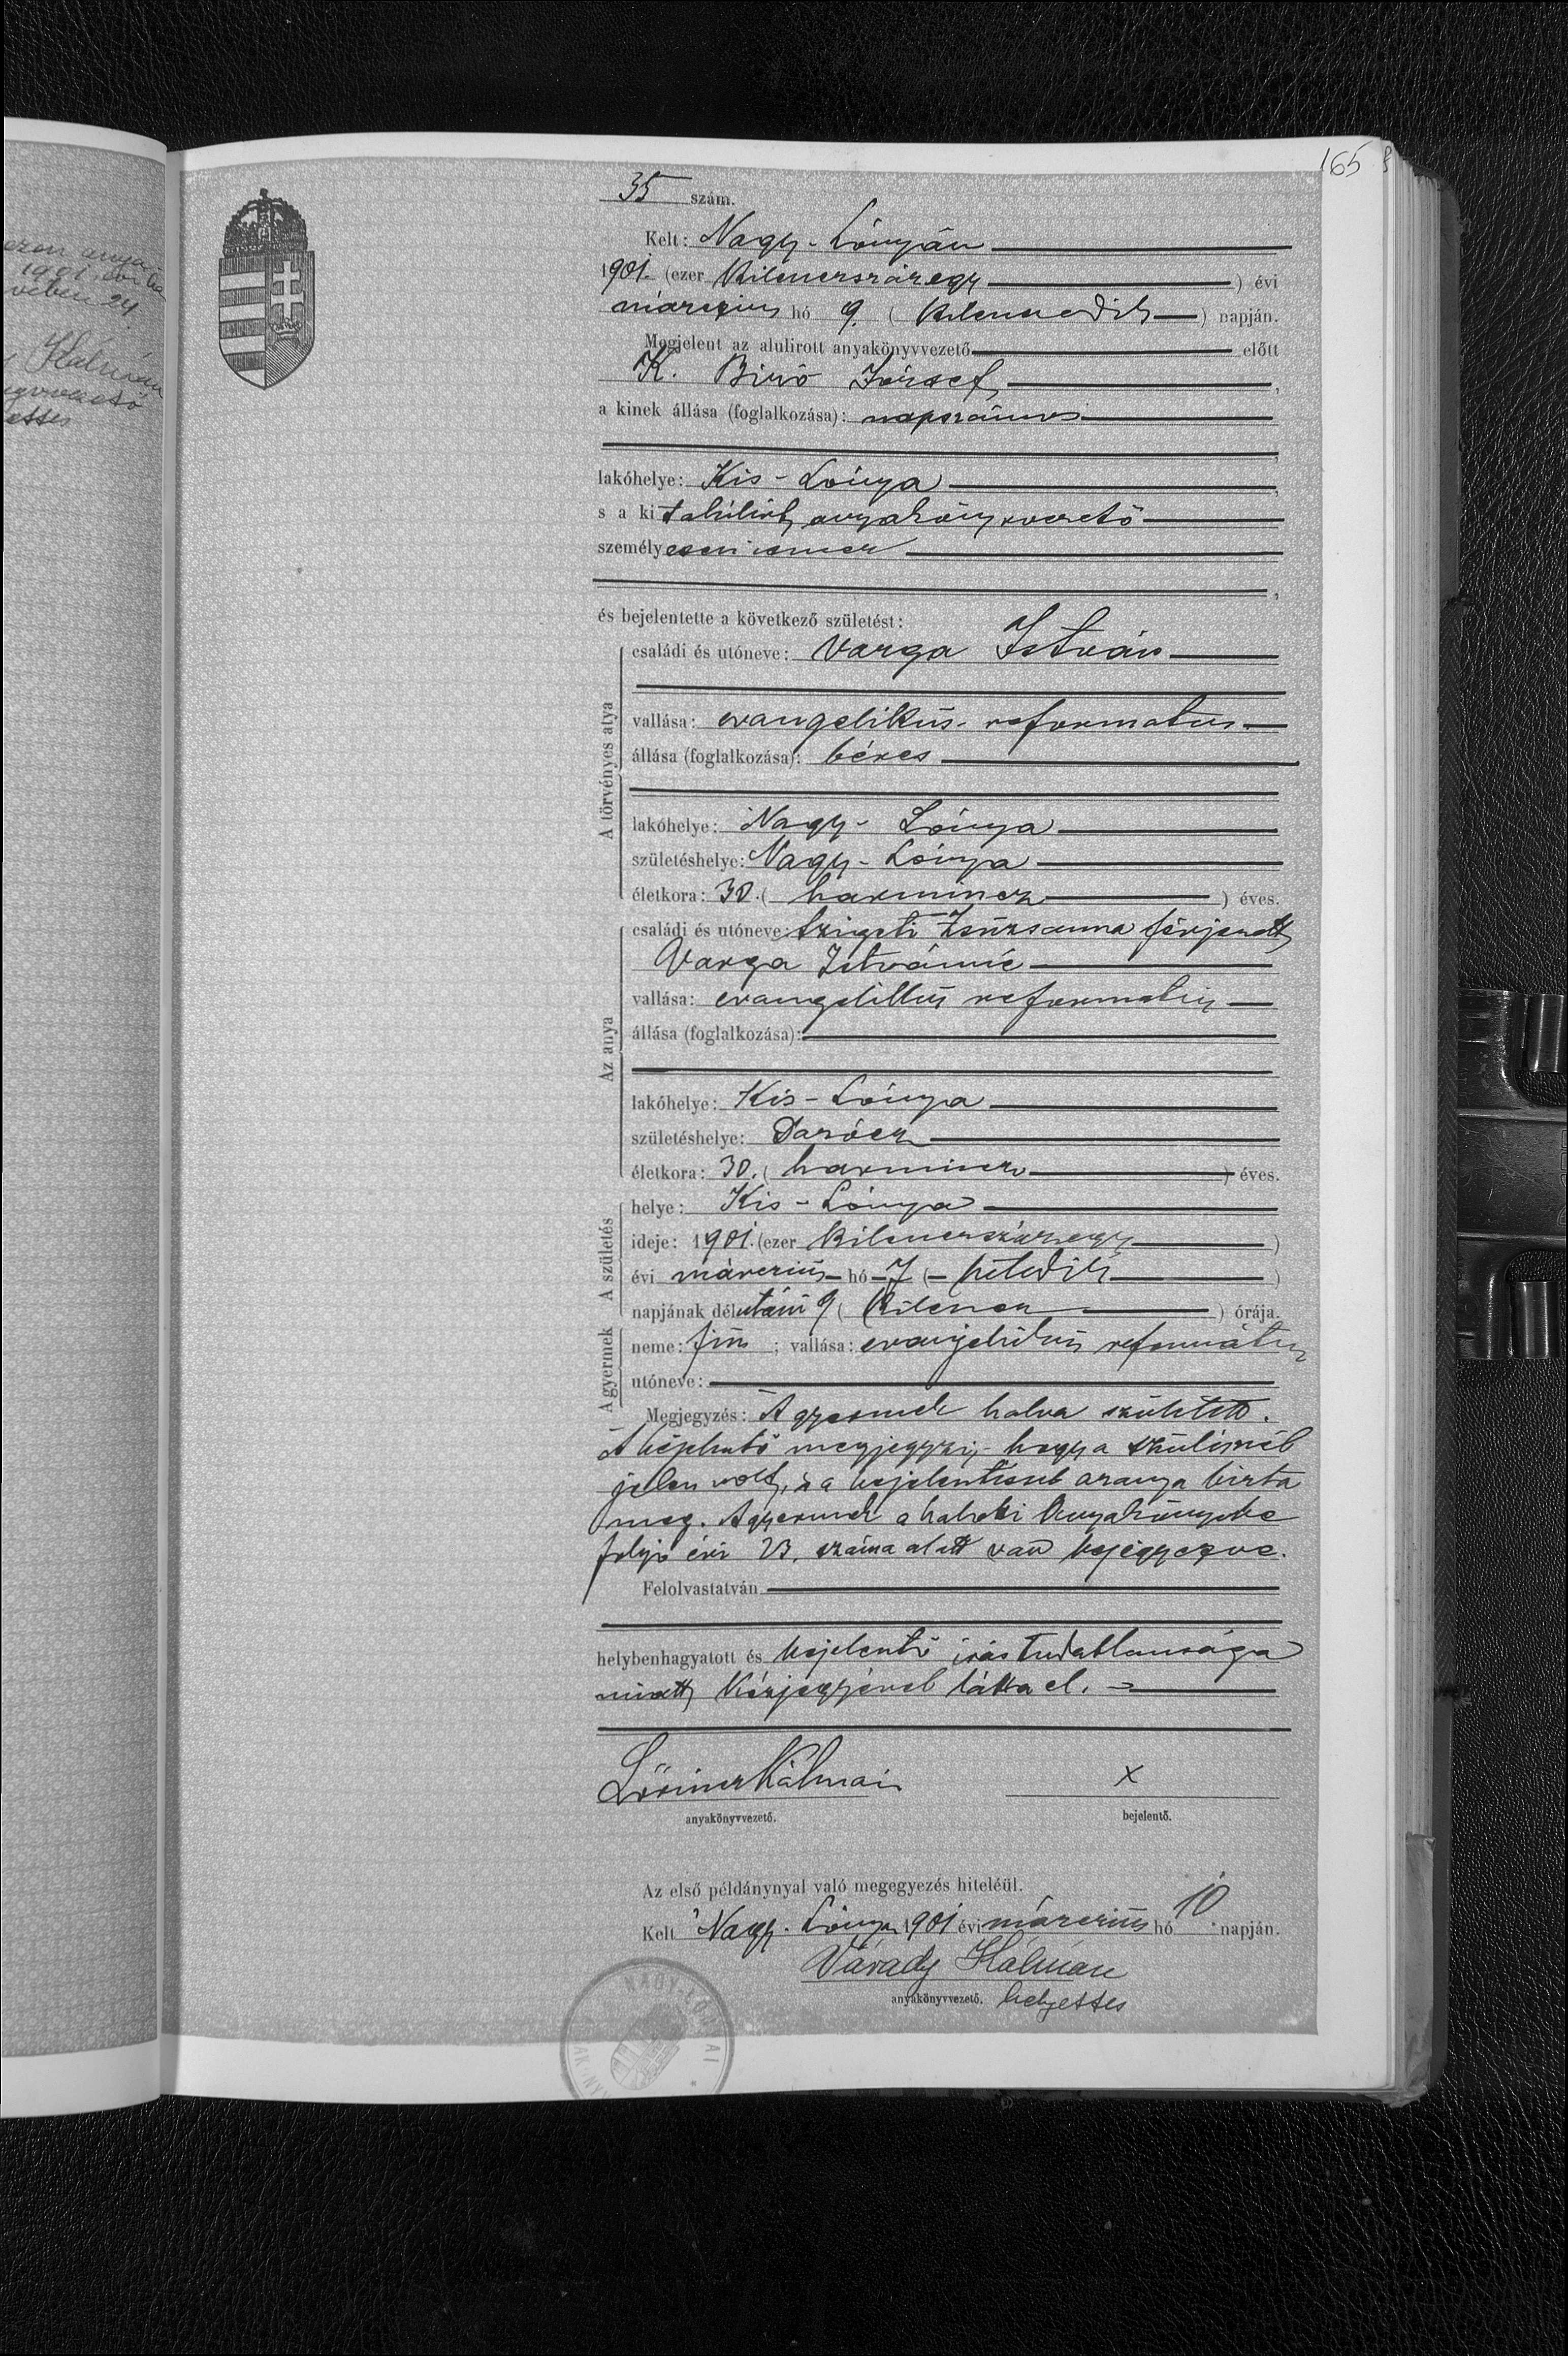 165
35 szám.
Kelt: Nagy-Lónyán
1901. (ezer kilenczszázegy) évi
márczius hó 9. (kilenczedik) napján.
Megjelent az alulirott anyakönyvvezető előtt
K. Biró József,
a kinek állása (foglalkozása): napszámos
lakóhelye: Kis-Lónya,
s a kit alulirt anyakönyvvezető
személyesen ismer
és bejelentette a következő születést:
A törvényes atya
családi és utóneve: Varga István
vallása: evangelikus reformatus
állása (foglalkozása): béres
lakóhelye: Nagy-Lónya
születéshelye: Nagy-Lónya
életkora: 30. (harmincz) éves.
Az anya
családi és utóneve: Szigeti Zsuzsanna férjezett
Varga Istvánné
vallása: evangelikus reformatus
állása (foglalkozása):
lakóhelye: Kis-Lónya
születéshelye: Darócz
életkora: 30. (harmincz) éves.
A születés
helye: Kis-Lónya
ideje: 1901. (ezer kilenczszázegy)
évi márczius hó 7 (hetedik)
napjának délutáni 9 (kilencz) órája.
A gyermek
neme: fiú; vallása: evangelikus református
utóneve:
Megjegyzés: A gyermek halva született.
A bejelentő megjegyzi, hogy a szülésnél
jelen volt, s a bejelentéssel az anya bizta
meg. A gyermek a halotti anyakönyvbe
folyó évi 23. száma alatt van bejegyezve.
Felolvastatván
helybenhagyatott és bejelentő irástudatlansága
miatt kézjegyével látta el.
Lőrincz Kálmán
anyakönyvvezető.
x
bejelentő.
Az első példánynyal való megegyezés hiteléül.
Kelt Nagy-Lónya 1901 évi márczius hó 10 napján.
Várady Kálmán
anyakönyvvezető. helyettes
NAGY-LÓNYAI